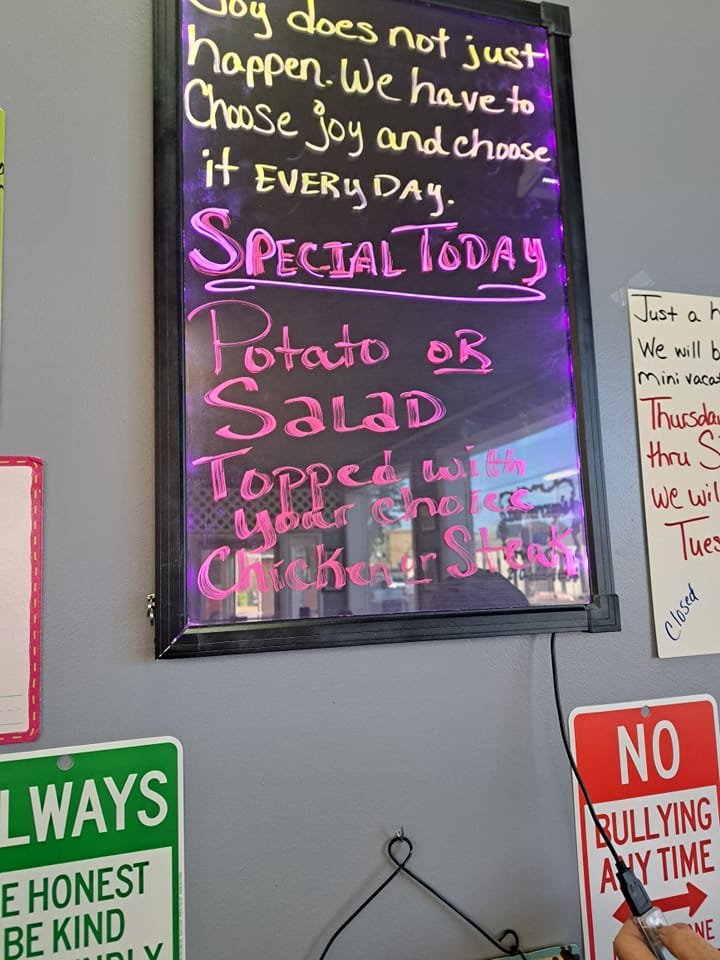 Joy does not just
happen. We have to
Choose joy and choose
it EVERY DAY.
SPECIAL TODAY
Potato OR
SALAD
Topped with
your choice
Chicken or Steak
Just a
We will
mini
Thursday
thru
We
Tues
Closed
LWAYS
E HONEST
BE KIND
NO
BULLYING
ANY TIME